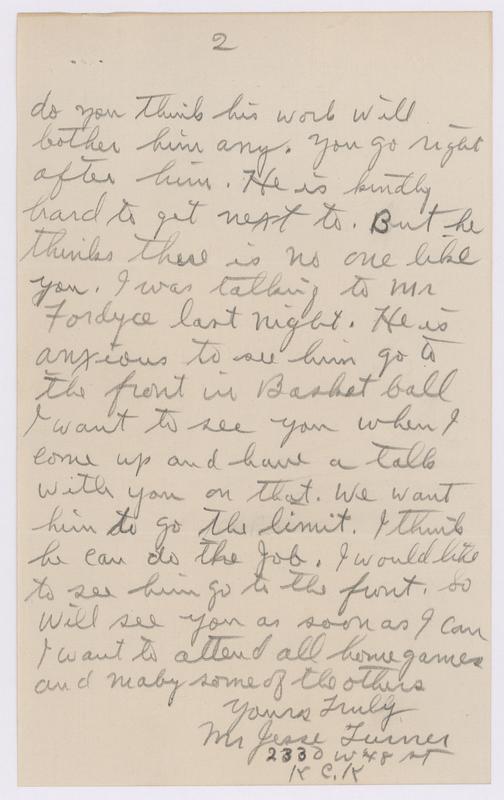 2
do you think his work will
bother him any. You go right
after him. He is kindly
hard to get next to. But he
thinks there is no one like
you. I was talking to Mr
Fordyce last night. He is
anxious to see him go to
the front in Basket ball
I want to see you when I
come up and have a talk
with you on that. We want
him to go the limit. I think
he can do the Job. I would like
to see him go to the front. So
will see you as soon as I can
I want to attend all home games
and maby some of the others
Yours Truly
Mr Jesse Turner
2330 W 48 St
K C. K